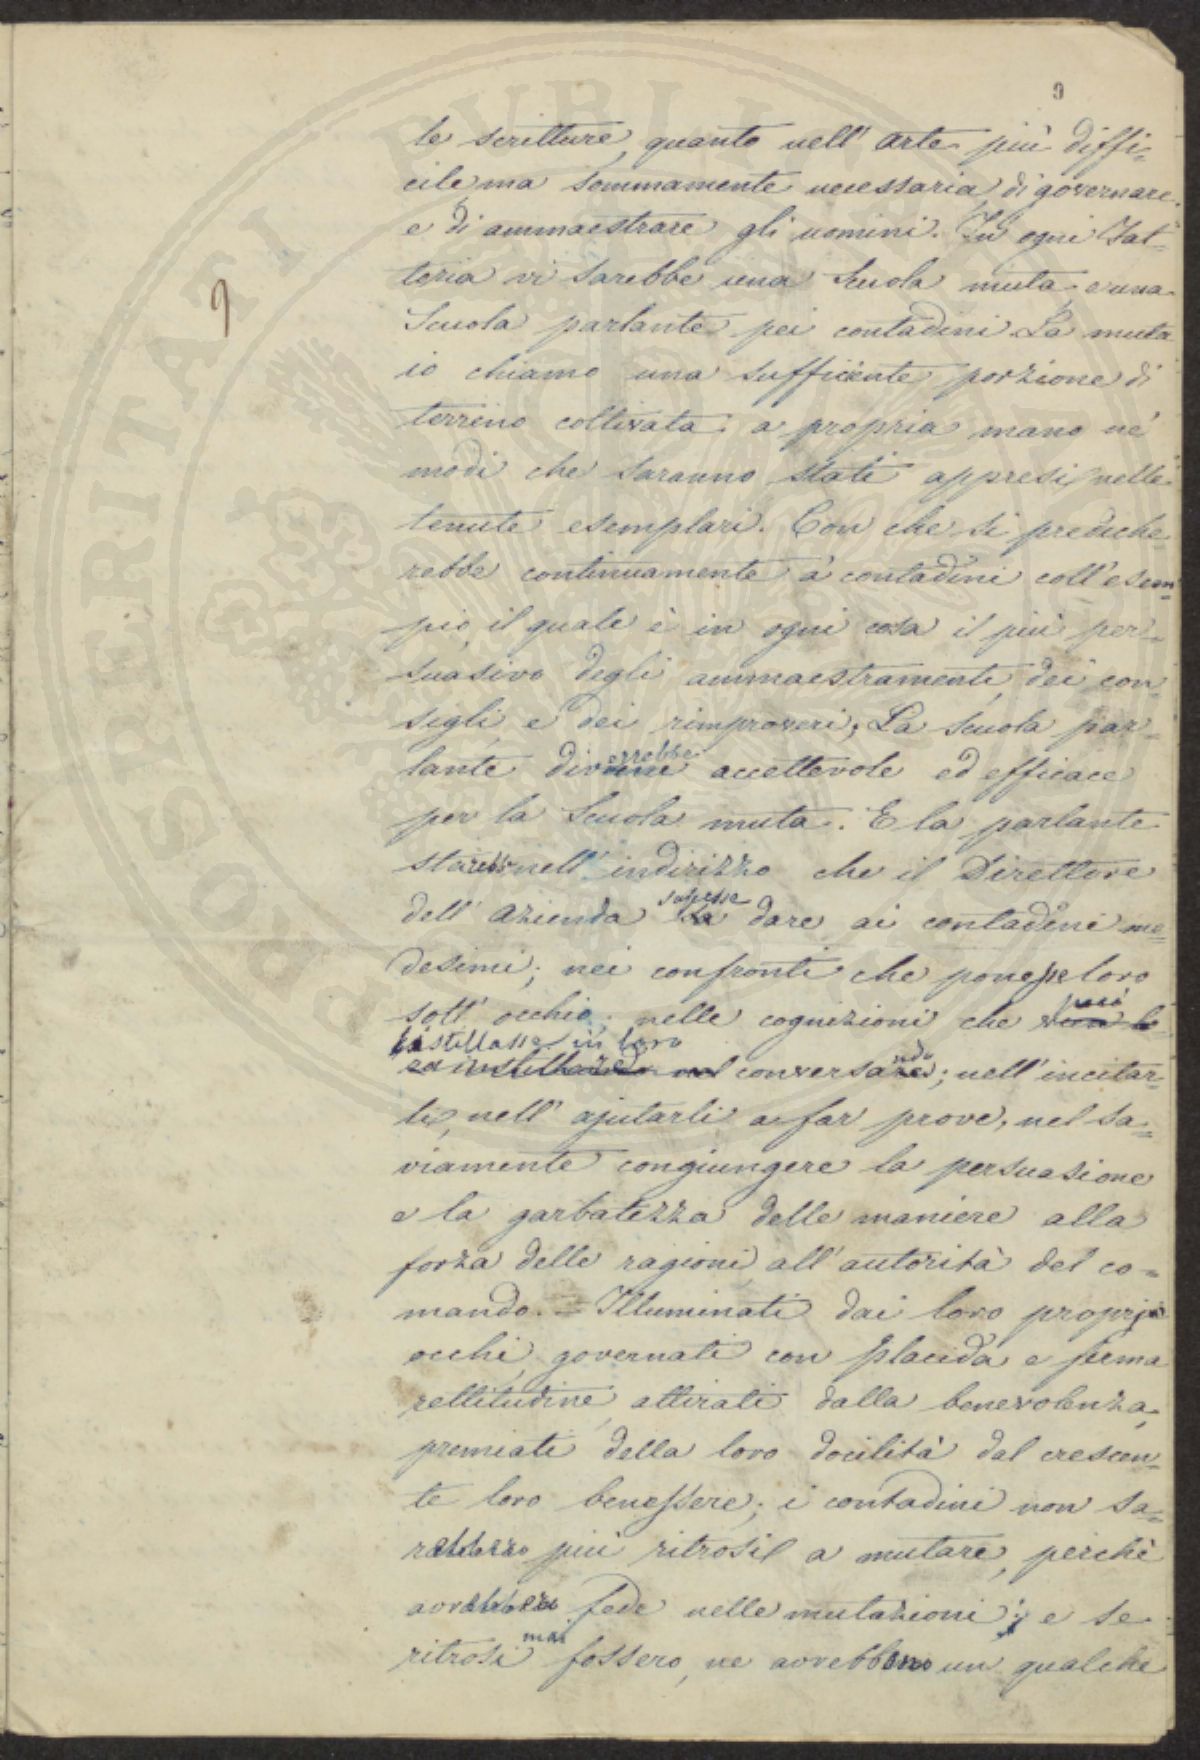 9
le scritture, quanto nell' arte più diffi-
cile, ma sommamente necessaria, di governare,
e di ammaestrare gli uomini. In ogni Fat-
toria vi sarebbe una Scuola muta, e una
9
Scuola parlante pei contadini. La muta
io chiamo una sufficiente porzione di
terreno coltivata a propria mano ne'
modi che saranno stati appresi nelle
tenute esemplari. Con che si prediche-
rebbe continuamente a' contadini coll'esem-
pio, il quale è in ogni cosa il più per-
suasivo degli ammaestramenti, dei con-
sigli, e dei rimproveri. La scuola par-
errebbe
lante div accettevole ed efficace
per la Scuola muta. E la parlante
starebbe nell' indirizzo che il Direttore
sapesse
dell' Azienda dare ai contadini me-
desimi; nei confronti che ponesse loro
sott' occhio; nelle cognizioni che
istillasse in loro
conversando; nell'incitar-
li, nell' ajutarli a far prove, nel sa-
viamente congiungere la persuasione
e la garbatezza delle maniere alla
forza delle ragioni, all'autorità del co-
mando. = Illuminati dai loro proprj
occhi, governati con placida e ferma
rettitudine, attirati dalla benevolenza,
premiati della loro docilità dal crescen-
te loro benessere; i contadini non sa-
rebbero più ritrosi a mutare, perchè
avrebbero fede nelle mutazioni; e se
mai
ritrosi fossero, ne avrebbero un qualche
PROSPERITATI PUBLICAE